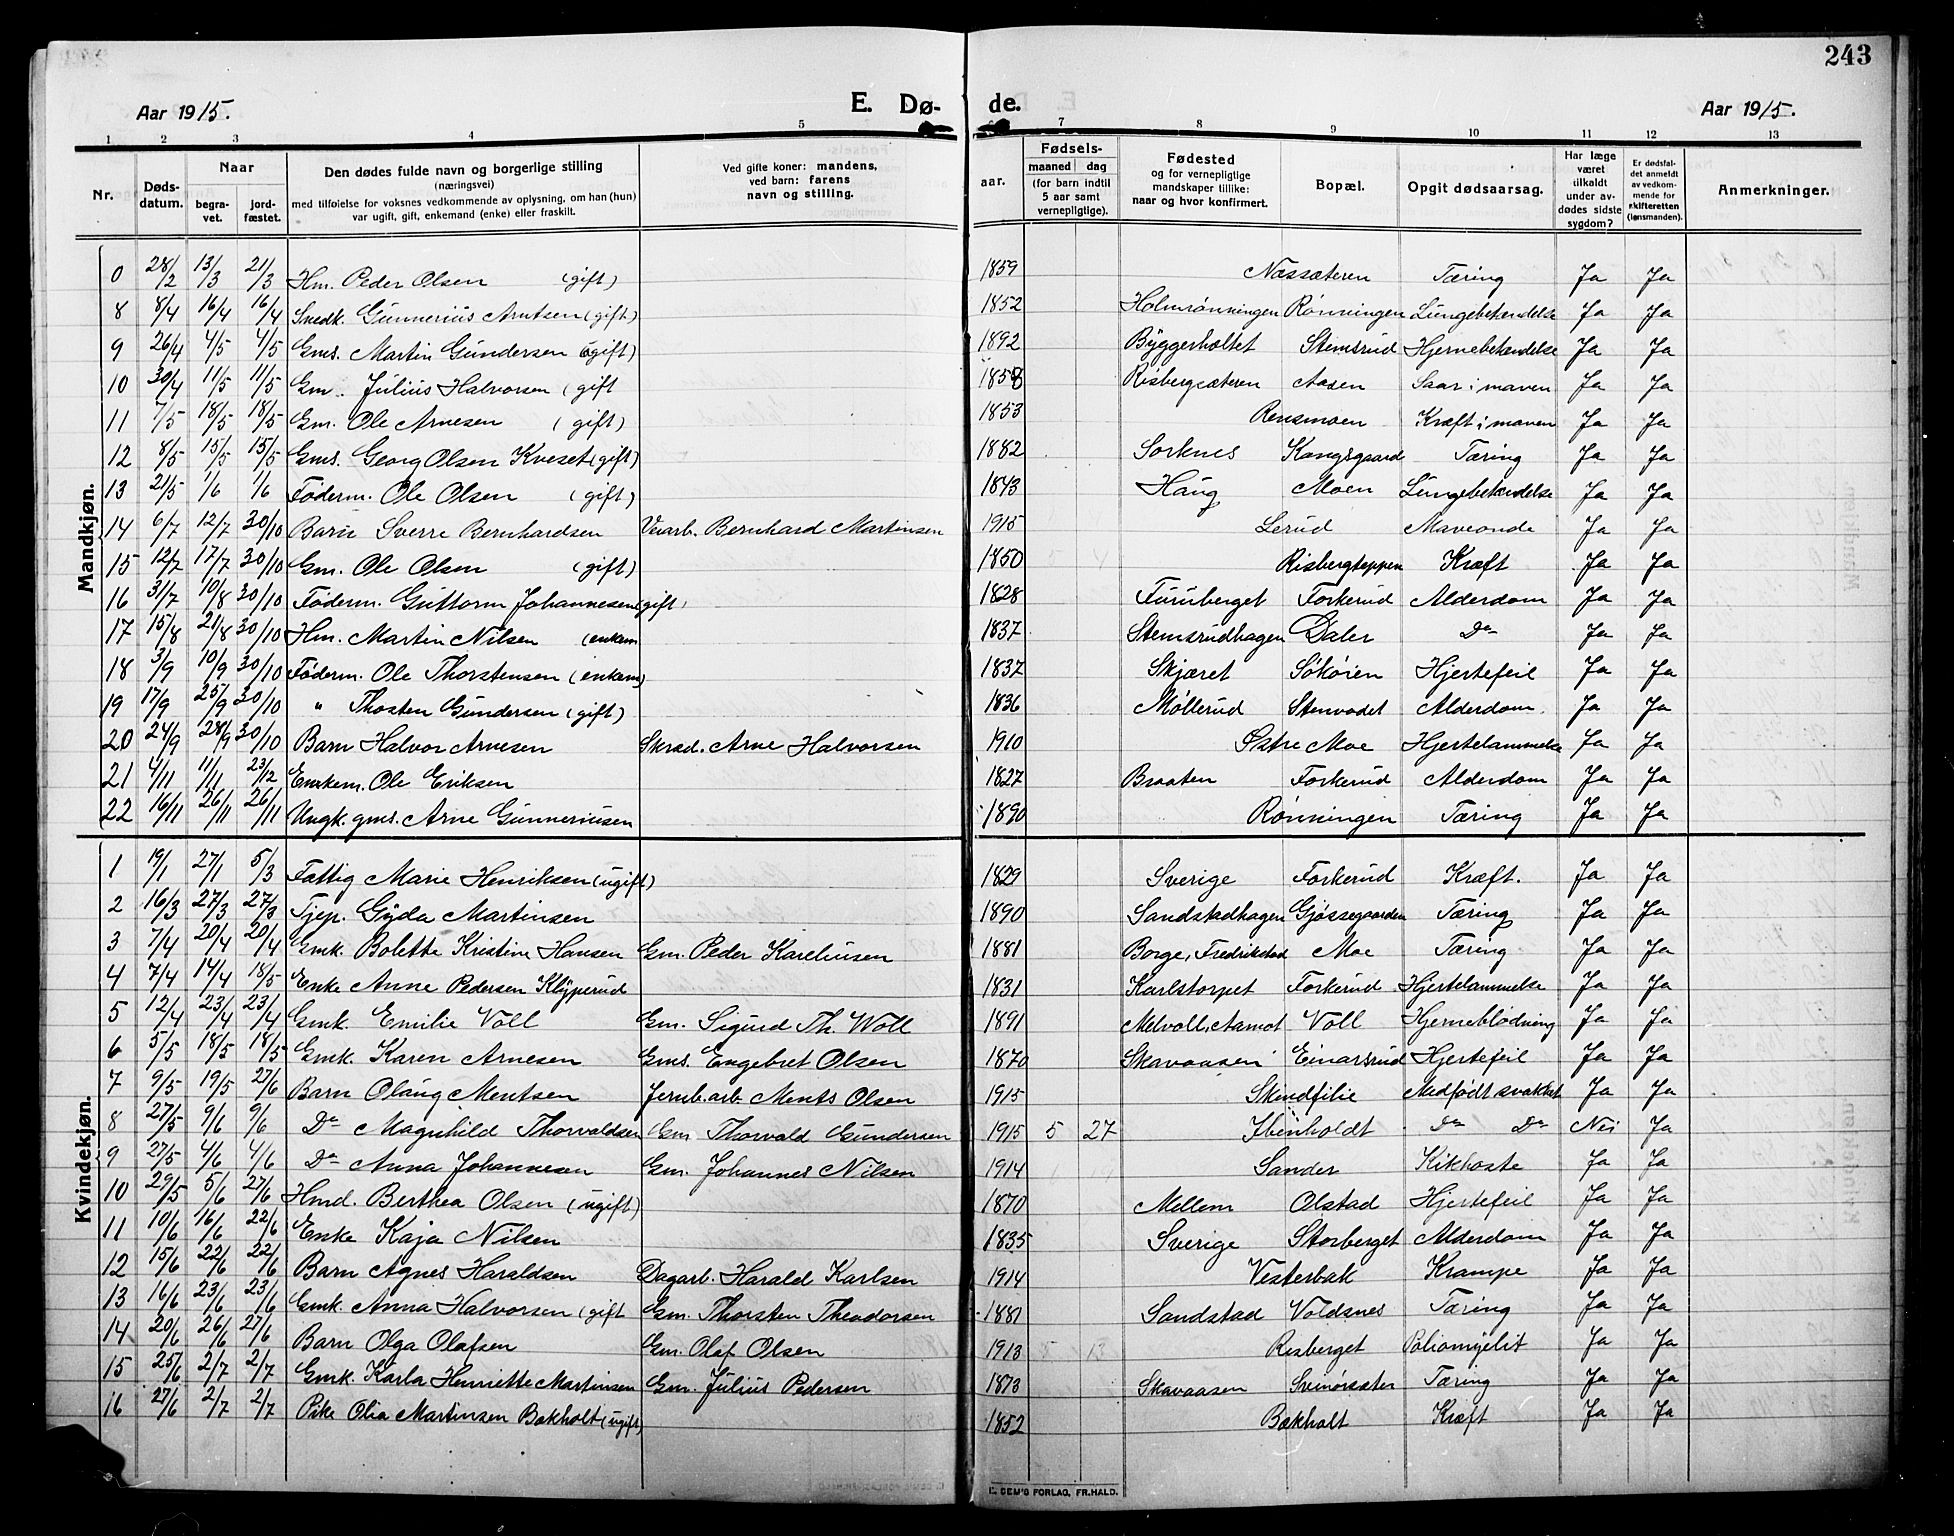 243
Aar 1915. E. Dø- de. Aar 1915.
1 2 3 4 5 7 8 9 10 11 12 13
Nr. Døds-datum. Naar begra-vet. jord-fæstet. Den dødes fulde navn og borgerlige stilling (næringsvei) med tilføielse for voksnes vedkommende av oplysning, om han (hun) var ugift, gift, enkemand (enke) eller fraskilt. Ved gifte koner: mandens, ved barn: farens navn og stilling. aar. Fødsels- maaned dag (for barn indtil 5 aar samt vernepligtige). Fødested og for vernepligtige mandskaper tillike: naar og hvor konfirmert. Bopæl. Opgit dødsaarsag. Har læge været tilkaldt under av-dødes sidste sygdom? Er dødsfal-det anmeldt av vedkom-mende for skifteretten (lensmanden). Anmerkninger.
Mandkjøn.
0 28/2 13/3 21/3 Hm. Peder Olsen (gift) 1859 Næssæteren Tæring Ja Ja
8 8/4 16/4 16/4 Snedk. Gunnerius Arntsen (gift) 1852 Holmrønningen Rønningen Lungebetændelse Ja Ja
9 26/4 4/5 4/5 Gms. Martin Gundersen (ugift) 1892 Byggerholtet Stemsrud Hjernebetændelse Ja Ja
10 30/4 11/5 11/5 Gm. Julius Halvorsen (gift 1858 Risbergsæteren Aasen Saar i maven Ja Ja
11 7/5 18/5 18/5 Gm. Ole Arnesen (gift) 1853 Rensmoen Kræft i maven Ja Ja
12 8/5 15/5 15/5 Gms. Georg Olsen Kveset (gift) 1882 Sorknes Kongsgaard Tæring Ja Ja
13 21/5 1/6 1/6 Føderm. Ole Olsen (gift) 1843 Haug Moen Lungebetændelse Ja Ja
14 6/7 12/7 30/10 Barn Sverre Bernhardsen Veiarb. Bernhard Martinsen 1915 Lerud Maveonde Ja Ja
15 12/7 17/7 30/10 Gm. Ole Olsen (gift) 1850 Risbergteppen Kræft Ja Ja
16 31/7 10/8 30/10 Føderm. Guttorm Johannesen (gift) 1828 Furuberget Forkerud Alderdom Ja Ja
17 15/8 21/8 30/10 Hm. Martin Nilsen (enkem 1837 Stemsrudhagen Daler Do Ja Ja
18 3/9 10/9 30/10 Føderm. Ole Thorstensen (enkem) 1837 Skjæret Søkøien Hjertefeil Ja Ja
19 17/9 25/9 30/10 " Thosten Gundersen (gift) 1836 Møllerud Stenvadet Alderdom. Ja Ja
20 24/9 28/9 30/10 Barn Halvor Arnesen Skræd. Arne Halvorsen 1910 Østre Moe Hjertelammelse Ja Ja
21 4/11 11/11 23/12 Enkem. Ole Eriksen 1827 Braaten Forkerud Alderdom Ja Ja
22 16/11 26/11 26/11 Ungk. gms. Arne Gunneriusen 1890 Rønningen Tæring Ja Ja
Kvindekjøn.
1 19/1 27/1 5/3 Fattig Marie Henriksen (ugift) 1829 Sverige Forkerud Kræft. Ja Ja
2 16/3 27/3 27/3 Tjep. Gyda Martinsen 1890 Sandstadhagen Gjøssegaarden Tæring Ja Ja
3 7/4 20/4 20/4 Gmk. Bolette Kristine Hansen Gm. Peder Kareliusen 1881 Borge, Fredrikstad Moe Tæring Ja Ja
4 7/4 14/4 18/5 Enke Anne Pedersen Klyperud 1831 Karlstorpet Forkerud Hjertelammelse Ja Ja
5 12/4 23/4 23/4 Gmk. Emilie Voll Gm. Sigurd Th. Woll 1891 Melvoll, Aamot Voll Hjerneblødning Ja Ja
6 5/5 18/5 18/5 Gmk. Karen Arnesen Gms. Engebret Olsen 1870 Skavaasen Einarsrud Hjertefeil Ja Ja
7 9/5 19/5 27/6 Barn Olaug Mentsen Jernb. arb Ments Olsen 1915 Skindfilie Medfødt svakhet Ja Ja
8 27/5 9/6 9/6 Do Magnhild Thorvaldsen Gm Thorvald Gundersen 1915 5 27 Do Do Nei Ja
9 27/5 4/6 4/6 Do Anna Johannesen Gm. Johannes Nilsen 1914 Sander Kikhoste Ja Ja
10 29/5 5/6 27/6 Hmd. Berthea Olsen (ugift) 1870 Mellem Olstad Hjertefeil Ja Ja
11 10/6 16/6 22/6 Enke Kaja Nilsen 1835 Sverige Storberget Alderdom Ja Ja
12 15/6 22/6 22/6 Barn Agnes Haraldsen Dagarb. Harald Karlsen 1914 Vesterbak Krampe Ja Ja
13 16/6 23/6 23/6 Gmk. Anna Halvorsen (gift Gm. Thorsten Theodorsen 1881 Sandstad Voldsnes Tæring Ja Ja
14 20/6 26/6 27/6 Barn Olga Olafsen Gm. Olaf Olsen 1913 Risberget Poliomyelit Ja Ja
15 25/6 2/7 2/7 Gmk. Karla Henriette Martinsen Gm. Julius Pedersen 1873 Skavaasen Svinørsæter Tæring Ja Ja
16 27/6 2/7 2/7 Pike Olia Martinsen Bækholt (ugift) 1852 Bækholt Kræft Ja Ja
E. SEM'S FORLAG, FR.HALD.